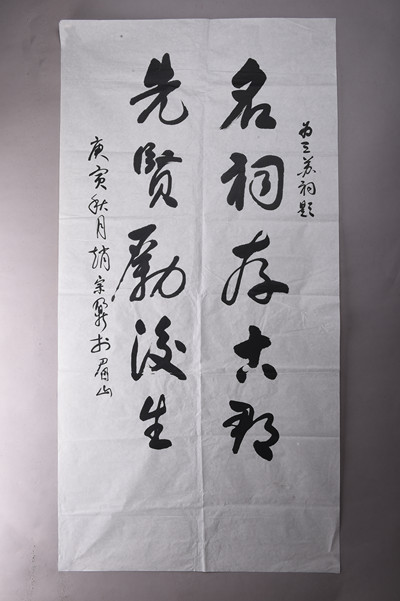 为三苏祠题
名祠存古郡
先贤励后生
庚寅秋月趙宗鼐於眉山